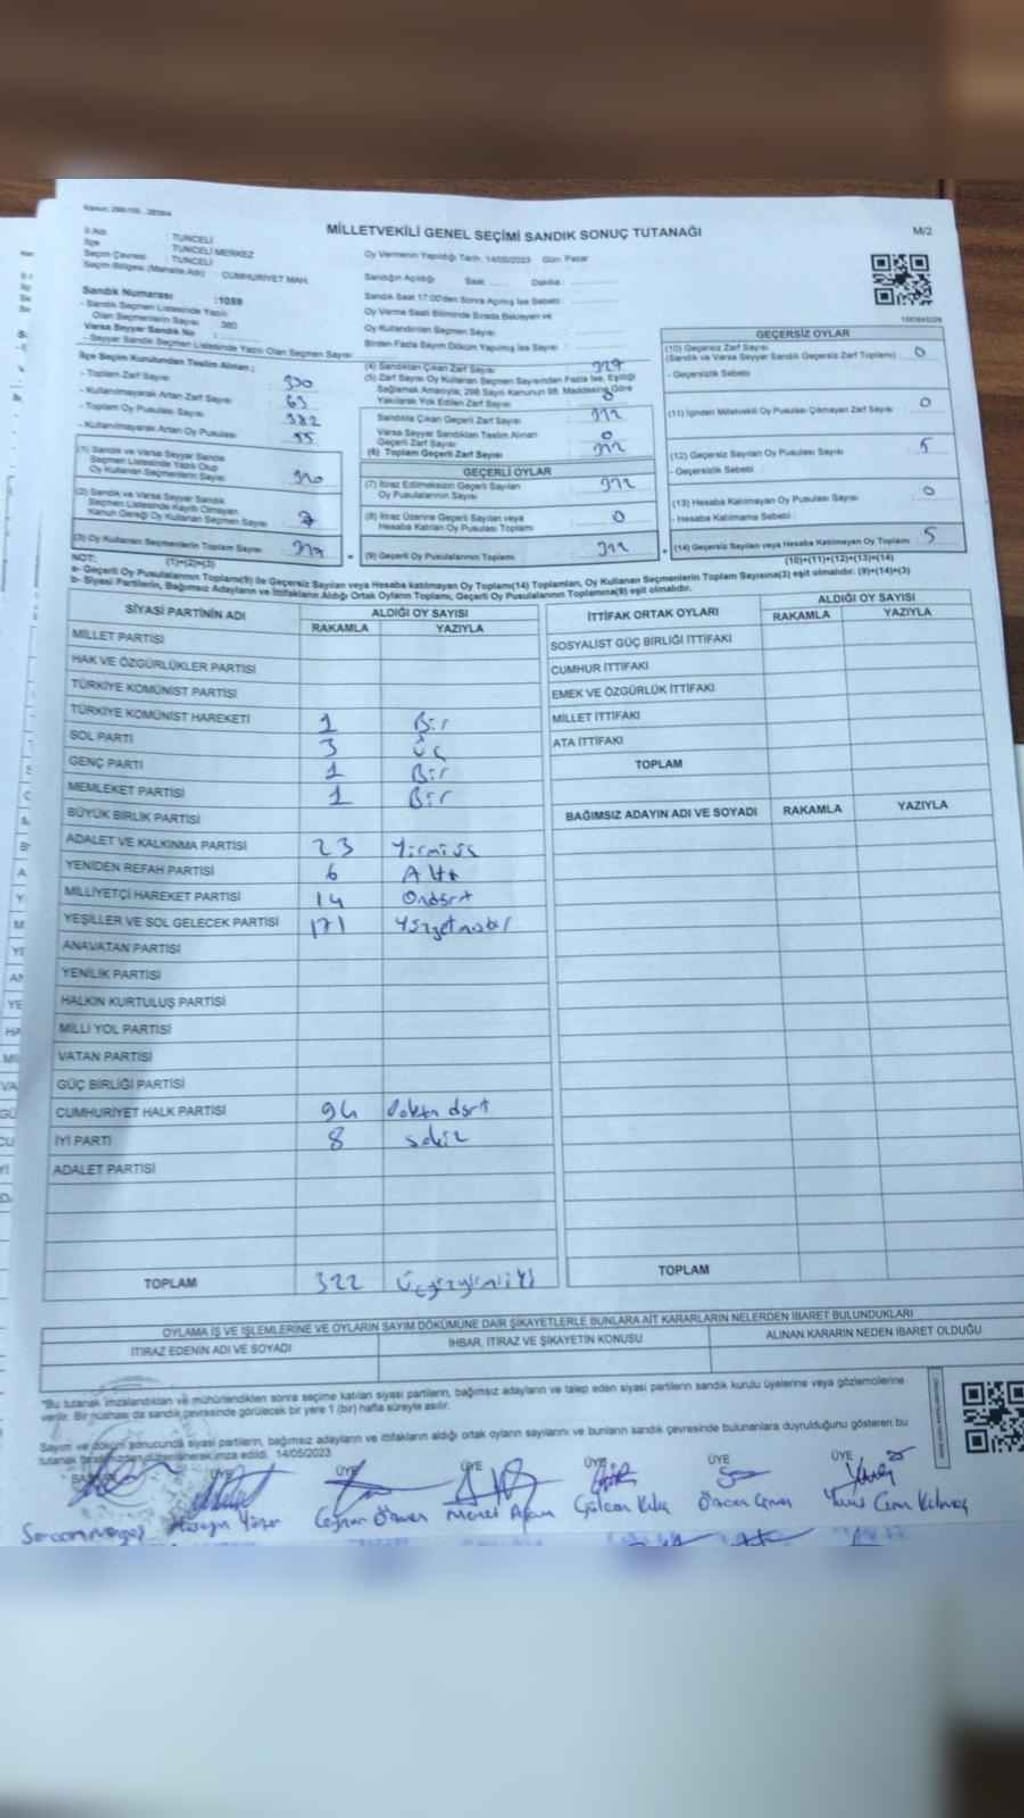 MİLLETVEKİLİ GENEL SEÇİMİ SANDIK SONUÇ TUTANAĞI
M/2
İl Adı : TUNCELİ
İlçe : TUNCELİ MERKEZ
Seçim Çevresi : TUNCELİ
Seçim Bölgesi (Mahalle Adı) : CUMHURİYET MAH.
Oy Vermenin Yapıldığı Tarih: 14/05/2023 Gün: Pazar
Sandığın Açıldığı Saat: Dakika:
Sandık Numarası :1059
- Sandık Seçmen Listesinde Yazılı
Olan Seçmenlerin Sayısı : 380
Varsa Seyyar Sandık No :
- Seyyar Sandık Seçmen Listesinde Yazılı Olan Seçmen Sayısı
Sandık Saat 17:00'den Sonra Açılmış İse Sebebi:
Oy Verme Saati Bitiminde Sırada Bekleyen ve
Oy Kullandırılan Seçmen Sayısı
Birden Fazla Sayım Döküm Yapılmış İse Sayısı
İlçe Seçim Kurulundan Teslim Alınan;
- Toplam Zarf Sayısı
- Kullanılmayarak Artan Zarf Sayısı 63
- Toplam Oy Pusulası Sayısı 382
- Kullanılmayarak Artan Oy Pusulası 55
(1) Sandık ve Varsa Seyyar Sandık
Seçmen Listesinde Yazılı Olup
Oy Kullanan Seçmenlerin Sayısı 320
(2) Sandık ve Varsa Seyyar Sandık
Seçmen Listesinde Kayıtlı Olmayan
Kanun Gereği Oy Kullanan Seçmen Sayısı 7
(3) Oy Kullanan Seçmenlerin Toplam Sayısı 327
(1)+(2)=(3)
(4) Sandıktan Çıkan Zarf Sayısı 327
(5) Zarf Sayısı Oy Kullanan Seçmen Sayısından Fazla İse, Eşitliği
Sağlamak Amacıyla, 298 Sayılı Kanunun 98. Maddesine Göre
Yakılarak Yok Edilen Zarf Sayısı 0
Sandıkta Çıkan Geçerli Zarf Sayısı 322
Varsa Seyyar Sandıktan Teslim Alınan
Geçerli Zarf Sayısı 0
(6) Toplam Geçerli Zarf Sayısı 322
GEÇERLİ OYLAR
(7) İtiraz Edilmeksizin Geçerli Sayılan
Oy Pusulalarının Sayısı 322
(8) İtiraz Üzerine Geçerli Sayılan veya
Hesaba Katılan Oy Pusulası Toplamı 0
(9) Geçerli Oy Pusulalarının Toplamı 322
GEÇERSİZ OYLAR
(10) Geçersiz Zarf Sayısı
(Sandık ve Varsa Seyyar Sandık Geçersiz Zarf Toplamı) 0
- Geçersizlik Sebebi
(11) İçinden Milletvekili Oy Pusulası Çıkmayan Zarf Sayısı 0
(12) Geçersiz Sayılan Oy Pusulası Sayısı 5
- Geçersizlik Sebebi
(13) Hesaba Katılmayan Oy Pusulası Sayısı 0
- Hesaba Katılmama Sebebi
(14) Geçersiz Sayılan veya Hesaba Katılmayan Oy Toplamı 5
(10)+(11)+(12)+(13)=(14)
NOT:
a- Geçerli Oy Pusulalarının Toplamı(9) ile Geçersiz Sayılan veya Hesaba katılmayan Oy Toplamı(14) Toplamları, Oy Kullanan Seçmenlerin Toplam Sayısına(3) eşit olmalıdır. (9)+(14)=(3)
b- Siyasi Partilerin, Bağımsız Adayların ve İttifakların Aldığı Ortak Oyların Toplamı, Geçerli Oy Pusulalarının Toplamına(9) eşit olmalıdır.
SİYASİ PARTİNİN ADI ALDIĞI OY SAYISI
RAKAMLA YAZIYLA
MİLLET PARTİSİ
HAK VE ÖZGÜRLÜKLER PARTİSİ
TÜRKİYE KOMÜNİST PARTİSİ
TÜRKİYE KOMÜNİST HAREKETİ 1 Bir
SOL PARTİ 3 Üç
GENÇ PARTİ 1 Bir
MEMLEKET PARTİSİ 1 Bir
BÜYÜK BİRLİK PARTİSİ
ADALET VE KALKINMA PARTİSİ 23 Yirmi üç
YENİDEN REFAH PARTİSİ 6 Altı
MİLLİYETÇİ HAREKET PARTİSİ 14 Ondört
YEŞİLLER VE SOL GELECEK PARTİSİ 171 Yüzyetmişbir
ANAVATAN PARTİSİ
YENİLİK PARTİSİ
HALKIN KURTULUŞ PARTİSİ
MİLLİ YOL PARTİSİ
VATAN PARTİSİ
GÜÇ BİRLİĞİ PARTİSİ
CUMHURİYET HALK PARTİSİ 94 Doksan dört
İYİ PARTİ 8 sekiz
ADALET PARTİSİ
TOPLAM 322 Üçyüzyirmiiki
İTTİFAK ORTAK OYLARI ALDIĞI OY SAYISI
RAKAMLA YAZIYLA
SOSYALİST GÜÇ BİRLİĞİ İTTİFAKI
CUMHUR İTTİFAKI
EMEK VE ÖZGÜRLÜK İTTİFAKI
MİLLET İTTİFAKI
ATA İTTİFAKI
TOPLAM
BAĞIMSIZ ADAYIN ADI VE SOYADI RAKAMLA YAZIYLA
TOPLAM
OYLAMA İŞ VE İŞLEMLERİNE VE OYLARIN SAYIM DÖKÜMÜNE DAİR ŞİKAYETLERLE BUNLARA AİT KARARLARIN NELERDEN İBARET BULUNDUKLARI
İTİRAZ EDENİN ADI VE SOYADI İHBAR, İTİRAZ VE ŞİKAYETİN KONUSU ALINAN KARARIN NEDEN İBARET OLDUĞU
*Bu tutanak imzalandıktan ve mühürlendikten sonra seçime katılan siyasi partilerin, bağımsız adayların ve talep eden siyasi partilerin sandık kurulu üyelerine veya gözlemcilerine
verilir. Bir nüshası da sandık çevresinde görülecek bir yere 1 (bir) hafta süreyle asılır.
Sayım ve döküm sonucunda siyasi partilerin, bağımsız adayların ve ittifakların aldığı ortak oyların sayılarını ve bunların sandık çevresinde bulunanlara duyrulduğunu gösteren bu
14/05/2023
BAŞKAN ÜYE ÜYE ÜYE ÜYE ÜYE ÜYE